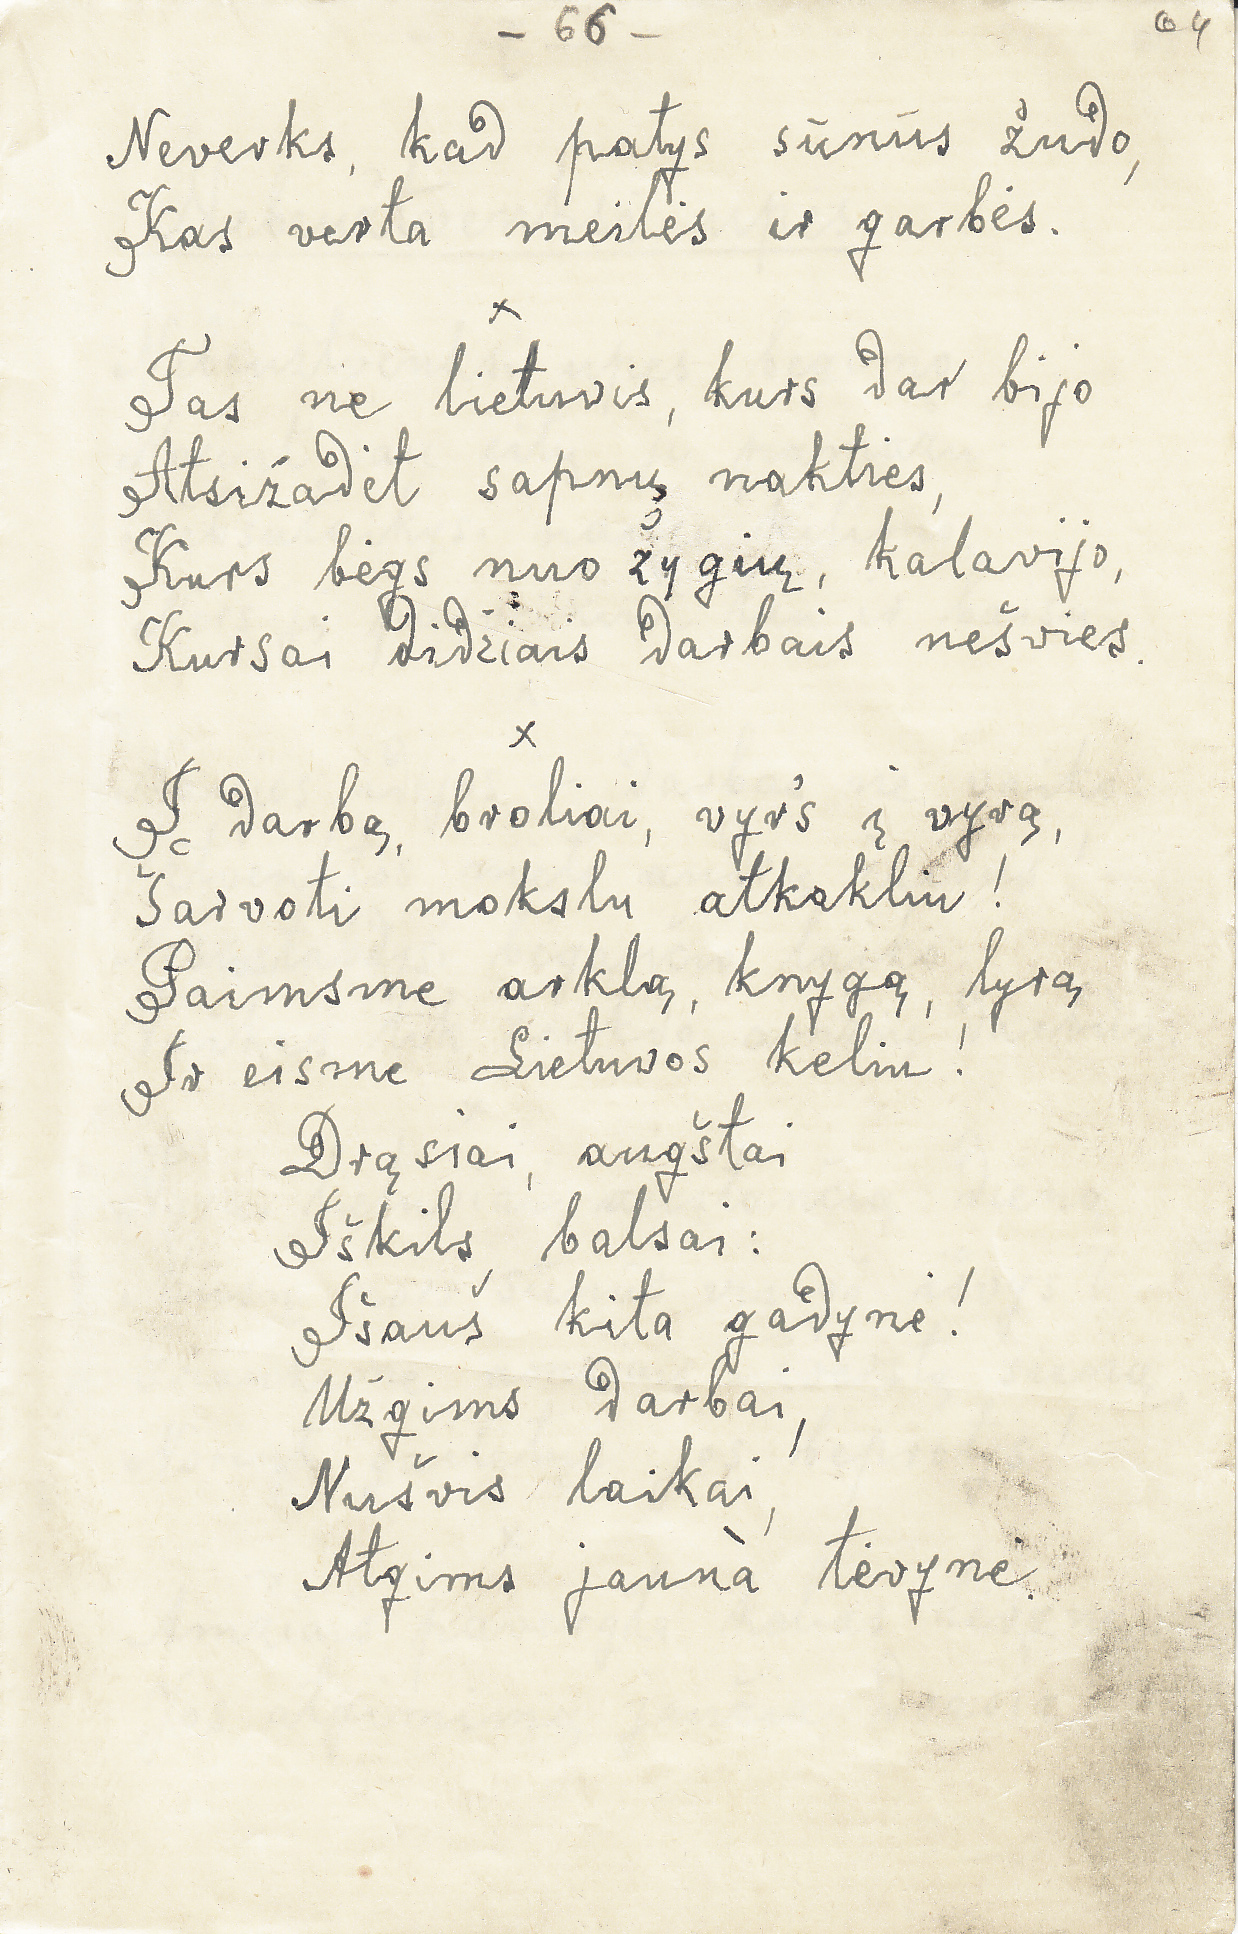 - 66 -
64
Neverks, kad patys sūnūs žudo,
Kas verta meilės ir garbės.
x
Tas ne lietuvis, kurs dar bijo
Atsižadėt sapnų nakties,
Kurs bėgs nuo žygių, kalavijo,
Kursai didžiais darbais nešvies.
x
Į darbą, broliai, vyrs į vyrą,
Šarvoti mokslu atkakliu!
Paimsme arklą, knygą, lyrą
Ir eisme Lietuvos keliu!
Drąsiai, augštai
Iškils balsai:
Išauš kita gadynė!
Užgims darbai,
Nušvis laikai,
Atgims jaunà tėvynė.